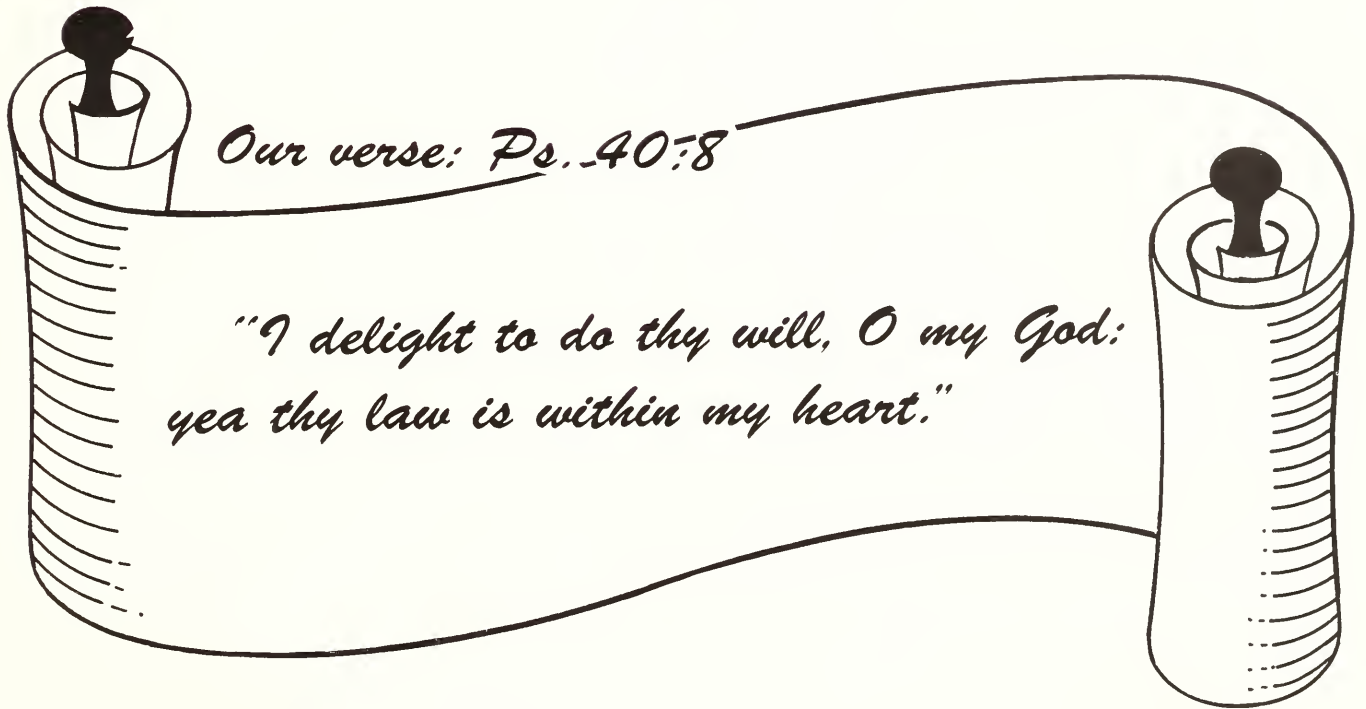 Our verse: Ps. 40:8
"I delight to do thy will, O my God:
yea thy law is within my heart."